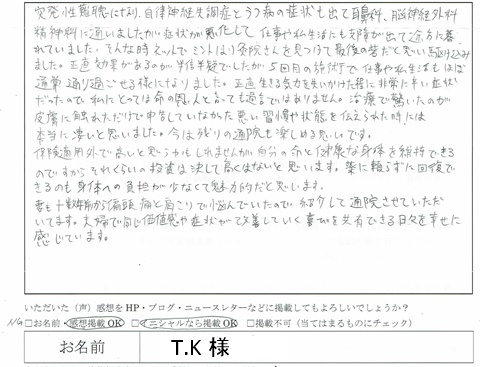 突発性難聴になり、自律神経失調症とうつ病の症状も出て耳鼻科、脳神経外科
精神科に通いましたが症状が悪化して仕事や私生活にも支障が出て途方に暮
れていました。そんな時ネットでミントはり灸院さんを見つけて最後の砦だと思い駆け込み
ました。正直効果があるのか半信半疑でしたが5回目の施術で仕事や私生活もほぼ
通常通り過ごせる様になりました。正直生きる気力を失いかけた程に非常に辛い症状
だったので私にとっては命の恩人と言っても過言ではありません。治療で驚いたのが
皮膚に触れただけで申告していなかった悪い習慣や状態を伝えられた時には
本当に凄いと思いました。今は残りの通院も楽しめる思いです。
保険適用外で高いと思うかもしれませんが自分の命と健康な身体を維持できる
のですからそれぐらいの投資は決して高くはないと思います。薬に頼らずに回復で
きるのも身体への負担が少なくて魅力的だと思います。
妻も十数年前から偏頭痛と肩こりで悩んでいたので紹介して通院させていただ
いてます。夫婦で同じ価値感や症状が改善していく喜びを共有できる日々を幸せに
感じています。
いただいた（声）感想をHP・ブログ・ニュースレターなどに掲載してもよろしいでしょうか？
NG □お名前・感想掲載OK □イニシャルなら掲載OK □掲載不可（当てはまるものにチェック）
お名前 T.K 様